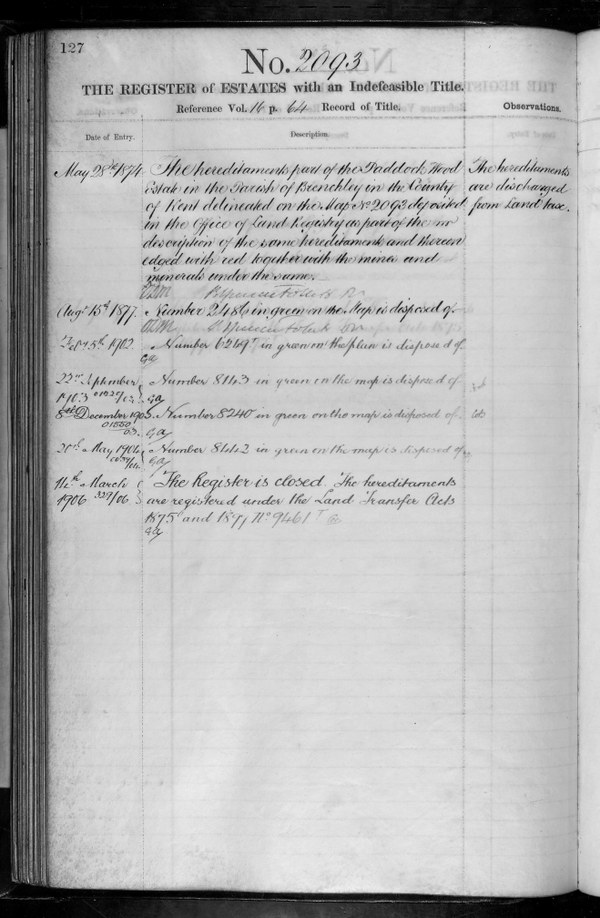 127
No. 2093
THE REGISTER of ESTATES with an Indefeasible Title.
Reference Vol. 16 p. 64 Record of Title.
Observations.
Date of Entry.
Description.
May 28th 1874
The hereditaments part of the Paddock Wood
Estate in the Parish of Brenchley in the County
of Kent delineated on the Map No 2093 deposited
in the Office of Land Registry as part of the
description of the same hereditaments and thereon
edged with red together with the mines and
minerals under the same.
The hereditaments
are discharged
from Land tax.
Augt 15th 1877.
Number 2486 in green on the Map is disposed of.
5th 1902
Number 6249 in green on the plan is disposed of.
GA
22nd September
1903
Number 8143 in green on the map is disposed of
GA
December 1903
Number 8240 in green on the map is disposed of
GA
May 1904
Number 8442 in green on the map is disposed of
GA
14th March
1906 329/06
The Register is closed. The hereditaments
are registered under the Land Transfer Acts
1875 and 1897 No 9461
GA